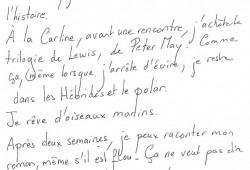 l'histoire.
À la Carline, avant une rencontre, j'achète la
trilogie de Lewis, de Peter May. Comme
ça, même lorsque j'arrête d'écrire, je reste
dans les Hébrides et le polar.
Je rêve d'oiseaux marins.
Après deux semaines, je peux raconter mon
roman, même s'il est flou. Ça ne veut pas dire